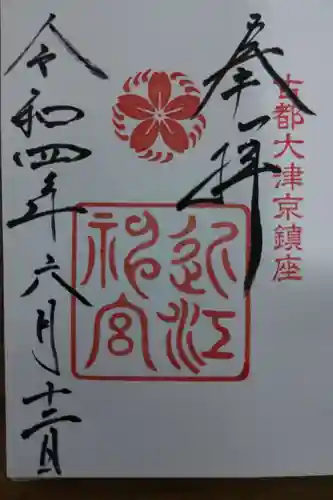 古都大津京鎮座
奉拝
近江神宮
令和四年六月十二日